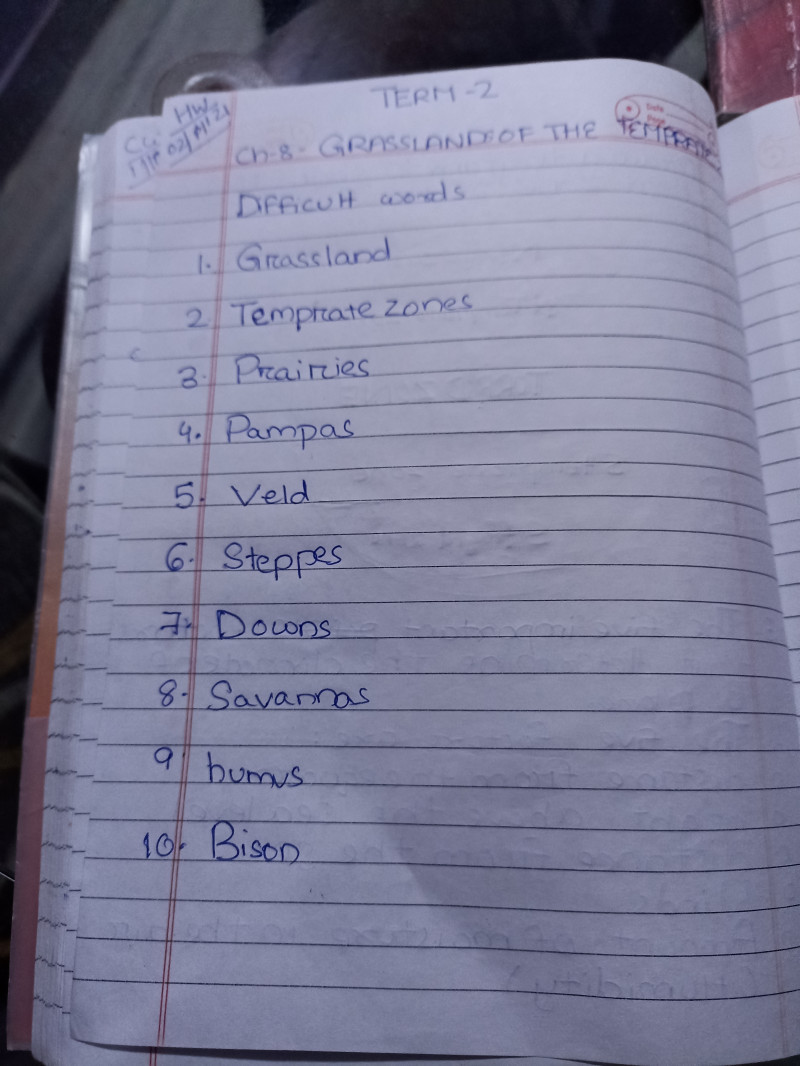 TERM-2
HW
02/11/21
Ch-8- GRASSLANDS OF THE TEMPRATE
DIFFICULT words
1. Grassland
2. Temprate zones
3. Prairies
4. Pampas
5. Veld
6. Steppes
7. Downs
8. Savannas
9. humus
10. Bison